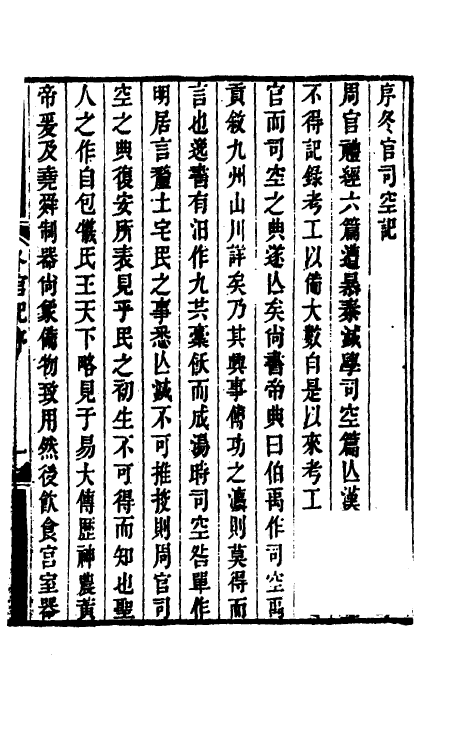 序冬官司空記
周官禮經六篇遭暴秦滅學司空篇亾漢
不得記錄考工以備大數自是以來考工
官而司空之典遂亾矣尙書帝典曰伯禹作司空禹
貢敘九州山川詳矣乃其興事傅功之灋則莫得而
言也逸書有汨作九共槀飫而成湯時司空咎單作
明居言釐土宅民之事悉亾滅不可推挍則周官司
空之典復安所表見乎民之初生不可得而知也聖
人之作自包犧氏王天下略見于易大傳歷神農黃
帝爰及堯舜制器尙象備物致用然後飮食宫室器
冬官記序
一